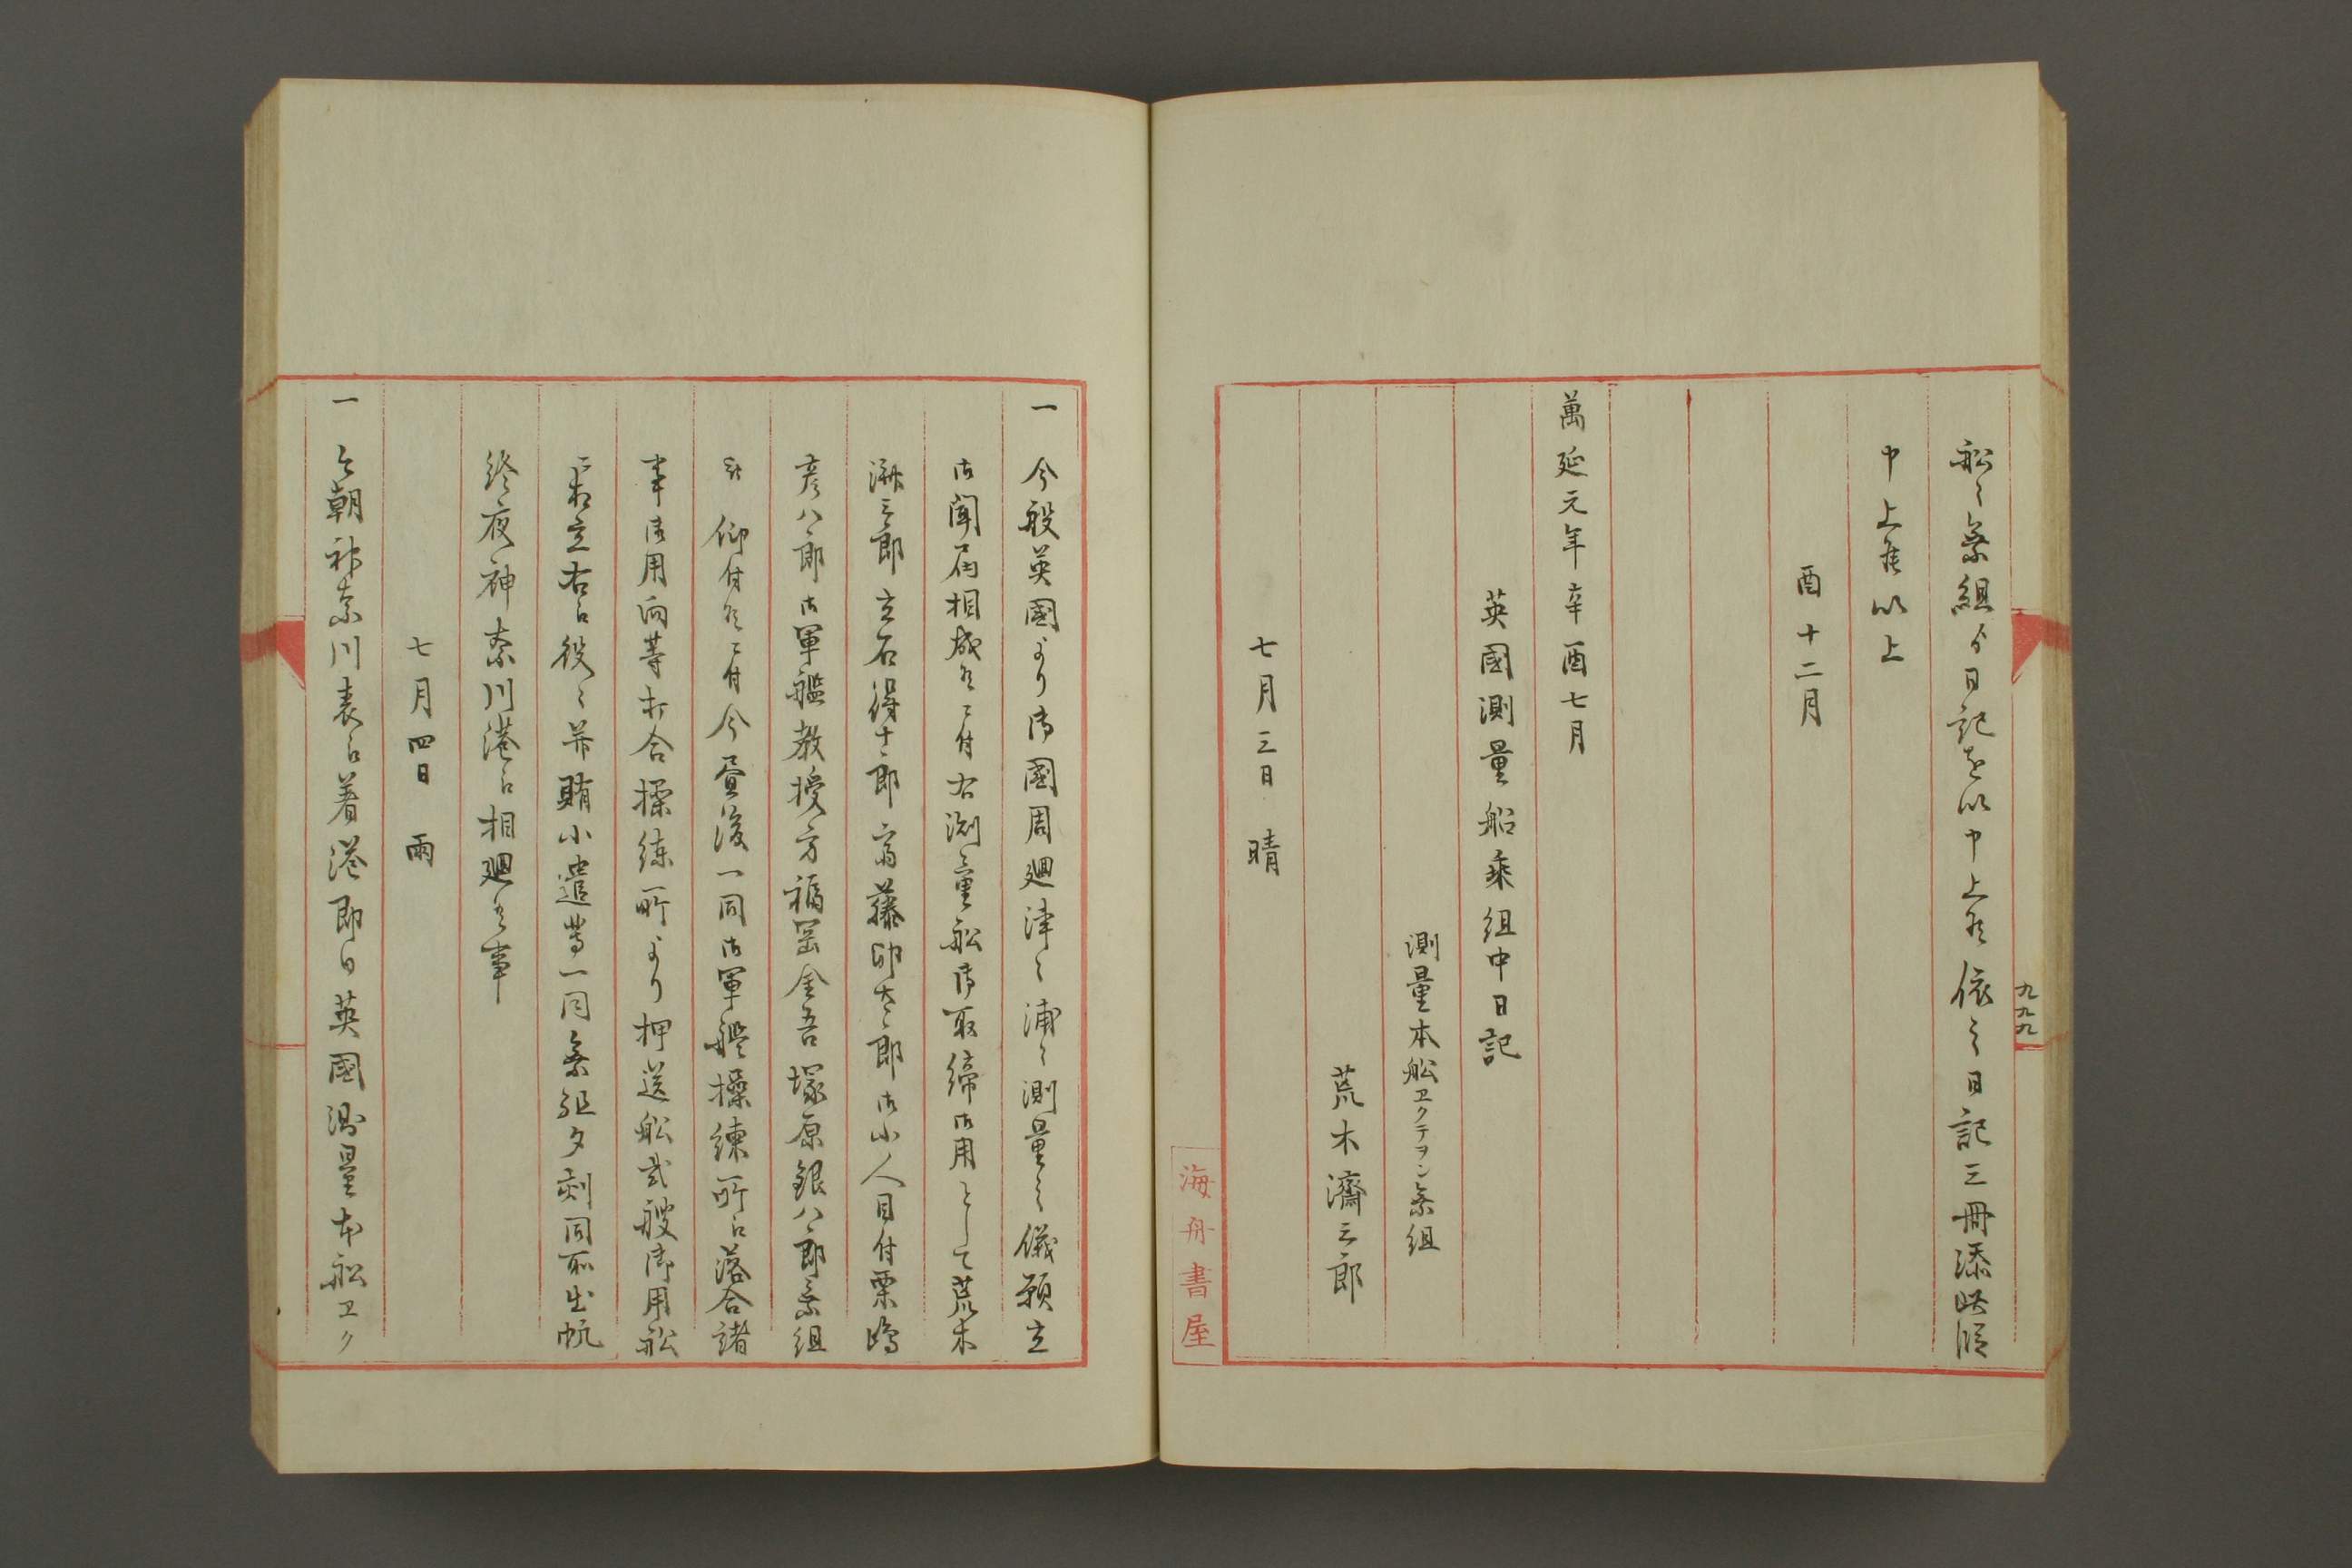 船々乗組ゟ日記を以申上候依之日記三冊添此段
申上候以上
酉十二月
萬延元年辛酉七月
英國測量船乗組中日記
測量本船ヱクテヲン乗組
荒木濟三郎
七月三日 晴
九九九
海舟書屋
一 今般英國より御國周廻津々浦々測量之儀願立
御聞届相成候ニ付右測量船御取締御用として荒木
濟三郎立石得十郎斎藤卯太郎御小人目付栗嶋
彦八郎御軍艦教授方福岡金吾塚原銀八郎乗組
被 仰付候ニ付今昼後一同御軍艦操練所江落合諸
事御用向等打合操練所より押送船弐艘御用船
ニ相立右江役々并賄小遣等一同乗組夕刻同所出帆
終夜神奈川港江相廻候事
七月四日 雨
一 今朝神奈川表江着港即日英國測量本船ヱク